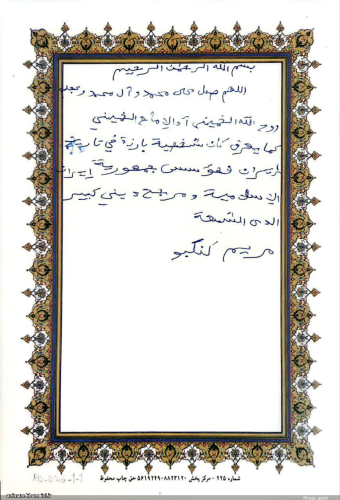 بسم الله الرحمن الرحيم
اللهم صل على محمد و آل محمد و عجل
روح الله الخميني أو الإمام الخميني
كما يعرف كان شخصية بارزة في تاريخ
إيران فهو سس جمهورية إيران
الإسلامية و مرجع ديني كبير
لدى الشيعة
مريم
شماره ۲۲۵ - مرکز پخش ۸۸۲۳۱۲۰-۵۶۱۹۲۲۹ حق چاپ محفوظ